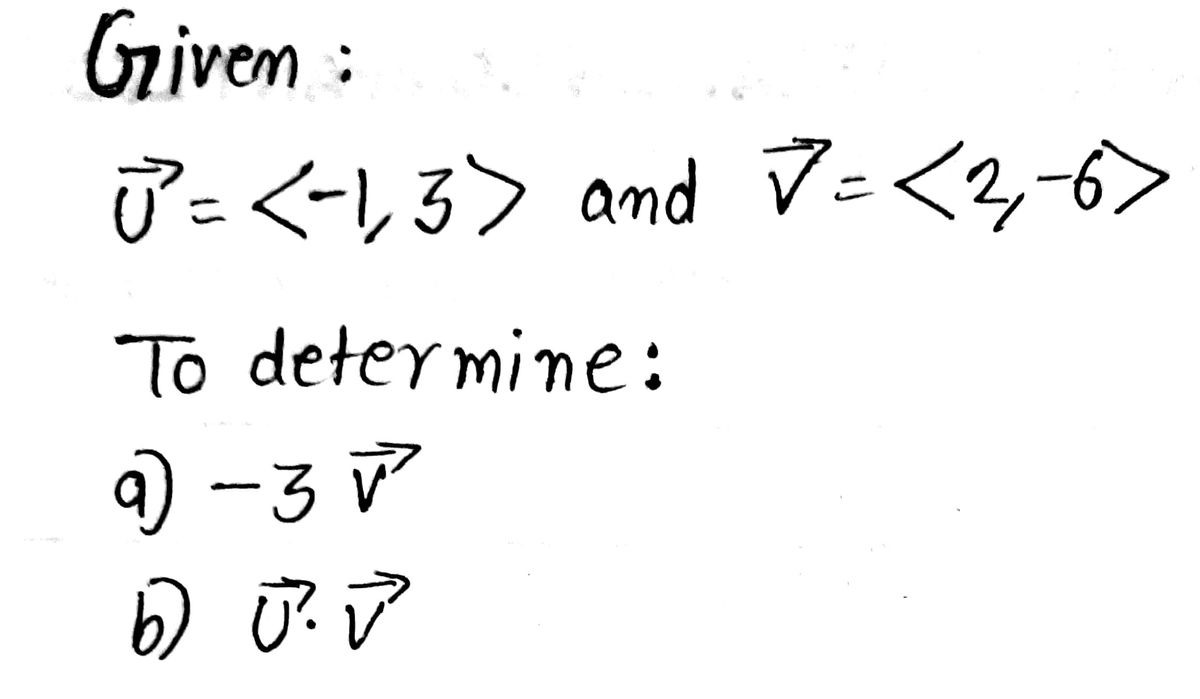 Given :
U⃗ = <-1, 3> and V⃗ = <2, -6>
To determine:
a) -3 V⃗
b) U⃗. V⃗